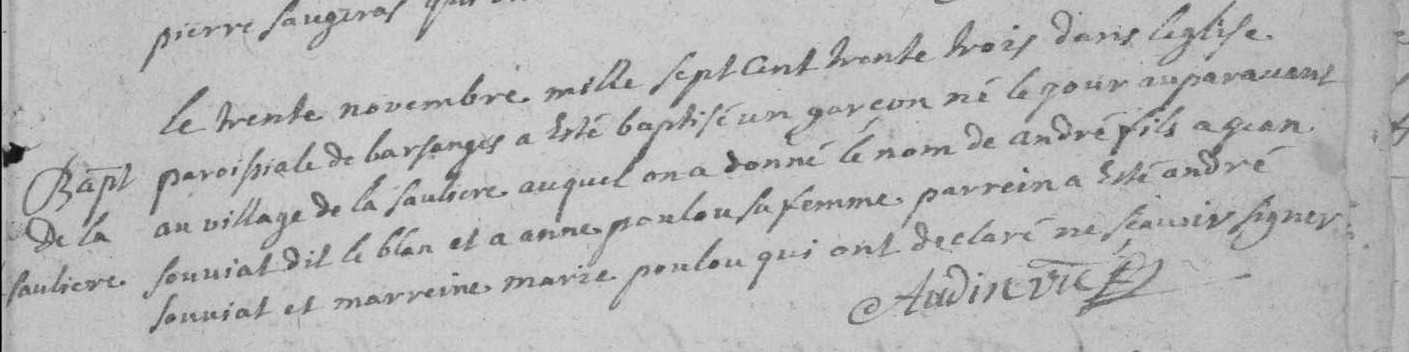 pierre saugeras qui
le trente novembre mille sept cent trente trois dans leglise
Bapt paroissiale de barsanges a esté baptisé un garçon né le jour auparavant
De la au village de la sauliere auquel on a donné le nom de andré fils a jean
sauliere souviat dit le blan et a anne poulou sa femme parrein a esté andré
souviat et marreine marie poulou qui ont declaré ne sçavoir signer
Audin vic